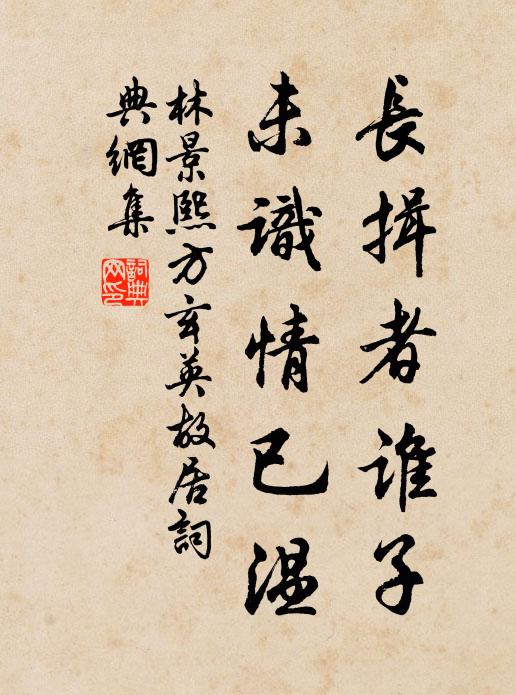 長揖者誰子
未識情已温
林景熙方玄英故居詞
典網集
詞典
网印